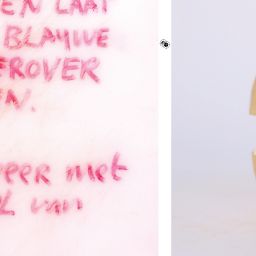 EN LAAT
BLAUWE
EROVER
EN.
PEER met
L van